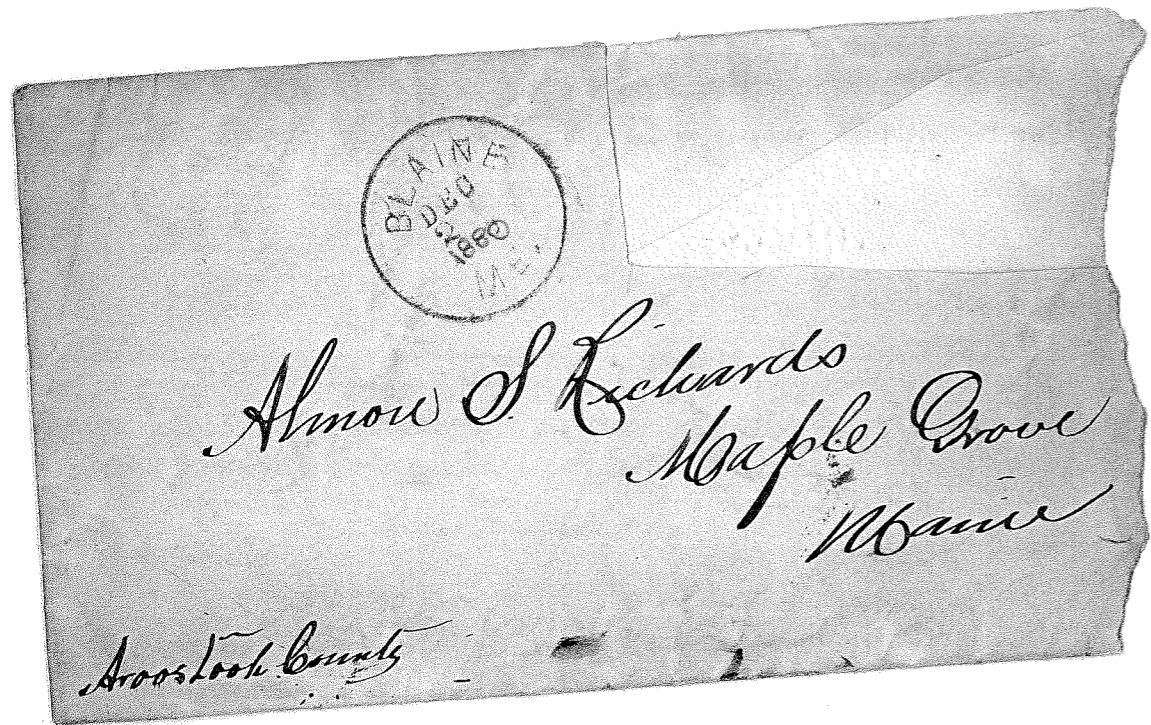 BLAINE
DEC
2
1880
ME.
Almon S. Richards
Maple Grove
Maine
Aroostook County